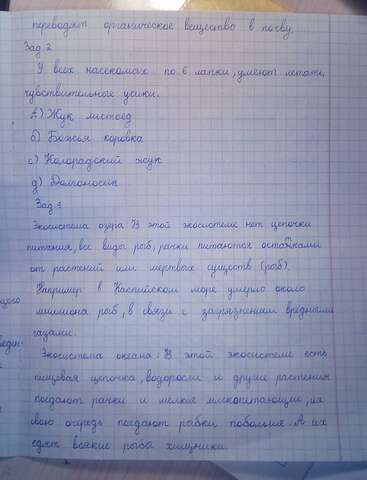 переводят органическое вещество в почву.
Зад. 2
У всех насекомых по 6 лапки, умеют летать,
чувствительные усики.
а) Жук листоед
б) Божья коровка
с) Колорадский жук
д) Долгоносик
Зад 3
Экосистема озера: В этой экосистеме нет цепочки
питания, все виды рыб, рачки питаются останками
от растений или мертвых существ (рыб).
Например в Каспийском море умерло около
миллиона рыб, в связи с загрязнением вредными
газами.
Экосистема океана: В этой экосистеме есть
пищевая цепочка, водоросли и другие растения
поедают рачки и мелкие млекопитающие, их
свою очередь поедают рыбки побольше. А их
едят всякие рыба хищники.